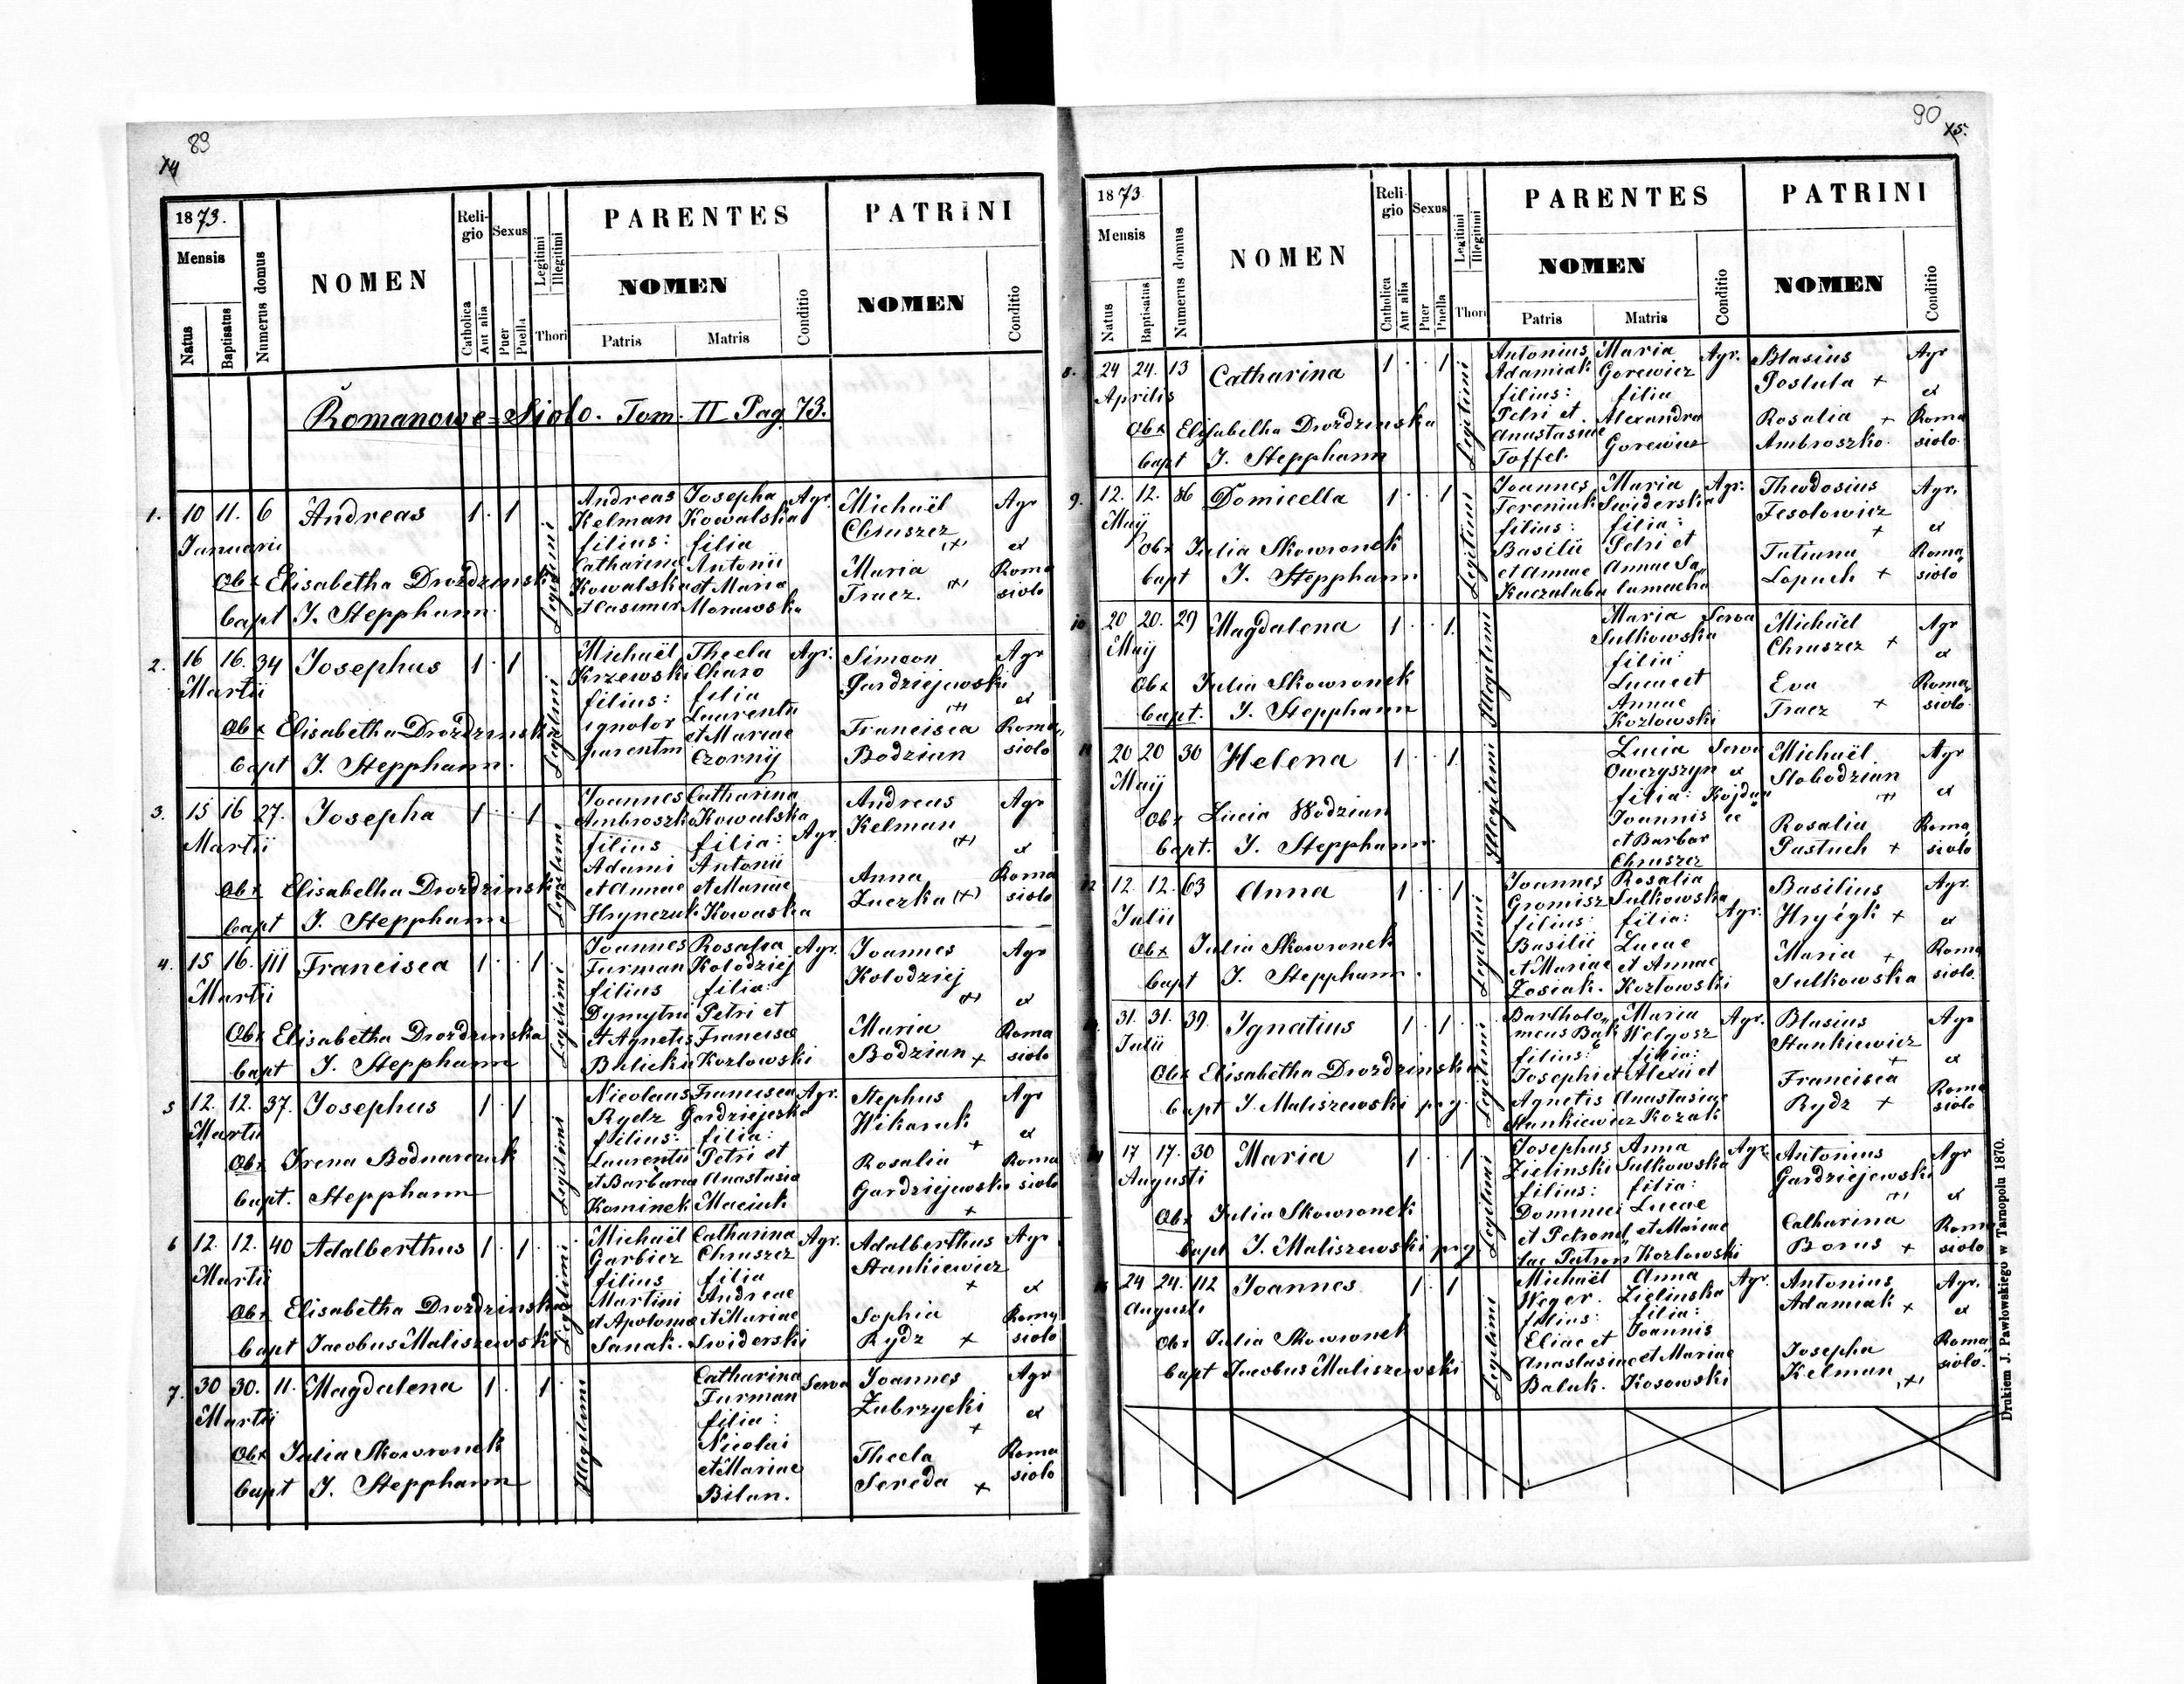 89
1873.
Mensis
Natus
Baptisatus
Numerus domus
NOMEN
Religio
Catholica
Aut alia
Sexus
Puer
Puella
Legitimi
Illegitimi
Thori
PARENTES
NOMEN
Patris
Matris
Conditio
PATRINI
NOMEN
Conditio
Romanowe=Sioło. Tom. II Pag. 73.
1. 10 11. 6 Andreas 1 · 1
Januarii
Obx Elisabetha Drozdzinska
bapt J. Stepphann
Legitimi
Andreas
Kelman
filius:
Catharina
Kowalska
Josepha
Kowalska
filia
Antonii
et Maria
Morawska
Agr.
Michaël
Chruszcz
(+)
Maria
Tracz. (+)
Agr
ex
Roma
siolo
2. 16 16. 34 Josephus 1 · 1
Martii
Obx Elisabetha Drozdzinska
bapt J. Stepphann.
Legitimi
Michaël
Krzewski
filius:
ignotor
parentm
Thecla
Charo
filia
Laurentii
et Mariae
Czornij
Agr.
Simeon
Gardziejewski
(+)
Francisca
Bodzian
Agr
ex
Roma„
siolo
3. 15 16 27. Josepha 1 · · 1
Martii
Obx Elisabetha Drozdzinska
bapt J. Stepphann
Legitimi
Joannes
Ambroszko
filius
Adami
et Annae
Hrynczuk
Catharina
Kowalska
filia:
Antonii
et Mariae
Kowaska
Agr
Andreas
Kelman
(+)
Anna
Luczka (+)
Agr
ex
Roma
siolo
4. 15 16. 111 Francisca 1 · · 1
Martii
Obx Elisabetha Drozdzinska
bapt J. Stepphann
Legitimi
Joannes
Furman
filius
Dymytru
et Agnetis
Bilicka
Rosalia
Kolodziej
filia:
Petri et
Francisca
Kozlowski
Agr.
Joannes
Kolodziej
(+)
Maria
Bodzian +
Agr
ex
Roma
siolo
5 12. 12. 37. Josephus 1 · 1
Martii
Obx Irena Bodnarczuk
bapt. Stepphann
Legitimi
Nicolaus
Rydz
filius:
Laurentii
et Barbarae
Kominek
Francisca
Gardziejeska
filia:
Petri et
Anastasia
Maciuk
Agr.
Stephus
Wikaruk
+
Rosalia
Gardziejewska
+
Agr
ex
Roma
siolo
6 12. 12. 40 Adalberthus 1 · 1
Martii
Obx Elisabetha Drozdzinska
bapt Jacobus Maliszewski
Legitimi
Michaël
Garbicz
filius
Martini
et Apolonia
Sanak.
Catharina
Chruszcz
filia
Andreae
et Mariae
Swiderski
Agr.
Adalberthus
Stankiewicz
+
Sophia
Rydz +
Agr
ex
Roma
siolo
7. 30 30. 11. Magdalena 1 · · 1
Martii
Obx Julia Skowronek
bapt J. Stepphann
Illegitimi
Catharina
Furman
filia:
Nicolai
et Mariae
Bilan.
Serva
Joannes
Zubrzycki
+
Thecla
Sereda +
Agr
ex
Roma
siolo
90
1873.
Mensis
Natus
Baptisatus
Numerus domus
NOMEN
Religio
Catholica
Aut alia
Sexus
Puer
Puella
Legitimi
Illegitimi
Thori
PARENTES
NOMEN
Patris
Matris
Conditio
PATRINI
NOMEN
Conditio
8. 24 24. 13 Catharina 1 · · 1
Aprilis
Obx Elisabetha Drozdzinska
bapt J. Stepphann
Legitimi
Antonius
Adamiak
filius:
Petri et
Anastasiae
Toffel.
Maria
Gorewicz
filia
Alexandra
Gorewicz
Agr.
Blasius
Postula +
Rosalia +
Ambroszko
Agr
ex
Roma
siolo
9. 12. 12. 86 Domicella 1 · · 1
Maij
Obx Julia Skowronek
bapt J. Stepphann
Legitimi
Joannes
Tereniuk
filius:
Basilii
et Annae
Kaczaluba
Maria
Swiderska
filia:
Petri et
Annae Sa„
lamacha
Agr.
Theodosius
Fesolowicz
+
Tatiana
Lopuch +
Agr.
ex
Roma„
siolo
10 20 20. 29 Magdalena 1 · · 1.
Maij
Obx Julia Skowronek
bapt. J. Stepphann
Illegitimi
Maria
Sulkowska
filia:
Lucae et
Annae
Kozlowski
Serva
Michaël
Chruszcz +
Eva
Tracz +
Agr
ex
Roma„
siolo
11 20 20 30 Helena 1 · · 1.
Maij
Obx Lucia Wodzian
bapt. J. Stepphann
Illegitimi
Lucia
Owczyszyn
filia:
Joannis
et Barbar
Chruszcz
Serva
ex
Kojdan„
ce
Michaël
Slobodzian
(+)
Rosalia
Pastuch +
Agr
ex
Roma„
siolo
12 12. 12. 63 Anna 1 · · 1
Julii
Obx Julia Skowronek
bapt J. Stepphann.
Legitimi
Joannes
Gromisz
filius:
Basilii
et Mariae
Zosiak.
Rosalia
Sulkowska
filia:
Lucae
et Annae
Kozlowski
Agr.
Basilius
+
Maria +
Sulkowska
Agr.
ex
Roma
siolo
31. 31. 39. Ygnatius 1 · 1 ·
Julii
Obx Elisabetha Drozdzinska
bapt J. Maliszewski
Legitimi
Bartholo„
meus Bąk
filius:
Josephi et
Agnetis
Stankiewicz
Maria
Welgosz
filia:
Alexii et
Anastasiae
Kozak
Agr.
Blasius
Stankiewicz
+
Francisca
Rydz +
Agr
ex
Roma
siolo
17 17. 30 Maria 1 · · 1
Augusti
Obx Julia Skowronek
bapt J. Maliszewski
Legitimi
Josephus
Zielinski
filius:
Dominici
et Petronel„
lae Patron
Anna
Sulkowska
filia:
Lucae
et Mariae
Kozlowski
Agr.
Antonius
Gardziejewski
(+)
Catharina
Borus +
Agr
ex
Roma
siolo
24 24. 112 Joannes 1 · 1
Augusti
Obx Julia Skowronek
bapt Jacobus Maliszewski
Legitimi
Michaël
Weger.
filius:
Eliae et
Anastasiae
Baluk.
Anna
Zielinska
filia:
Joannis
et Mariae
Kosowski
Agr.
Antonius
Adamiak +
Josepha
Kelman (+)
Agr.
ex
Roma„
siolo.
Drukiem J. Pawłowskiego w Tarnopolu 1870.